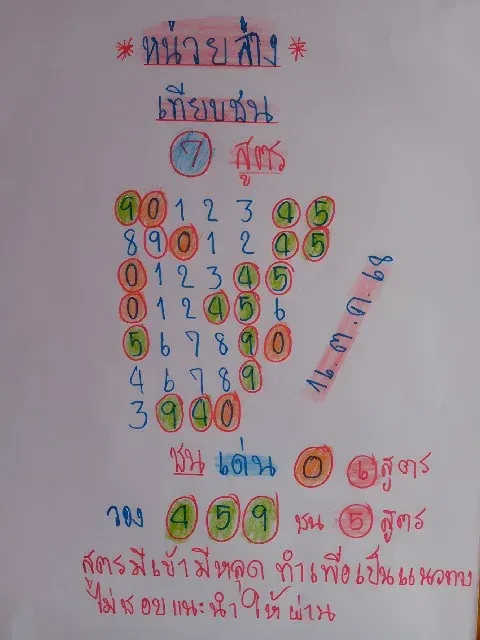 * หน่วยล่าง *
เทียบชน
7 สูตร
9 0 1 2 3 4 5
8 9 0 1 2 4 5
0 1 2 3 4 5
0 1 2 4 5 6
5 6 7 8 9 0
4 6 7 8 9
3 9 4 0
16. ต. ค. 68
ชน เด่น 0 6 สูตร
รอง 4 5 9 ชน 5 สูตร
สูตรมีเข้ามีหลุด ทำเพื่อเป็นแนวทาง
ไม่ชอบแนะนำให้ผ่าน